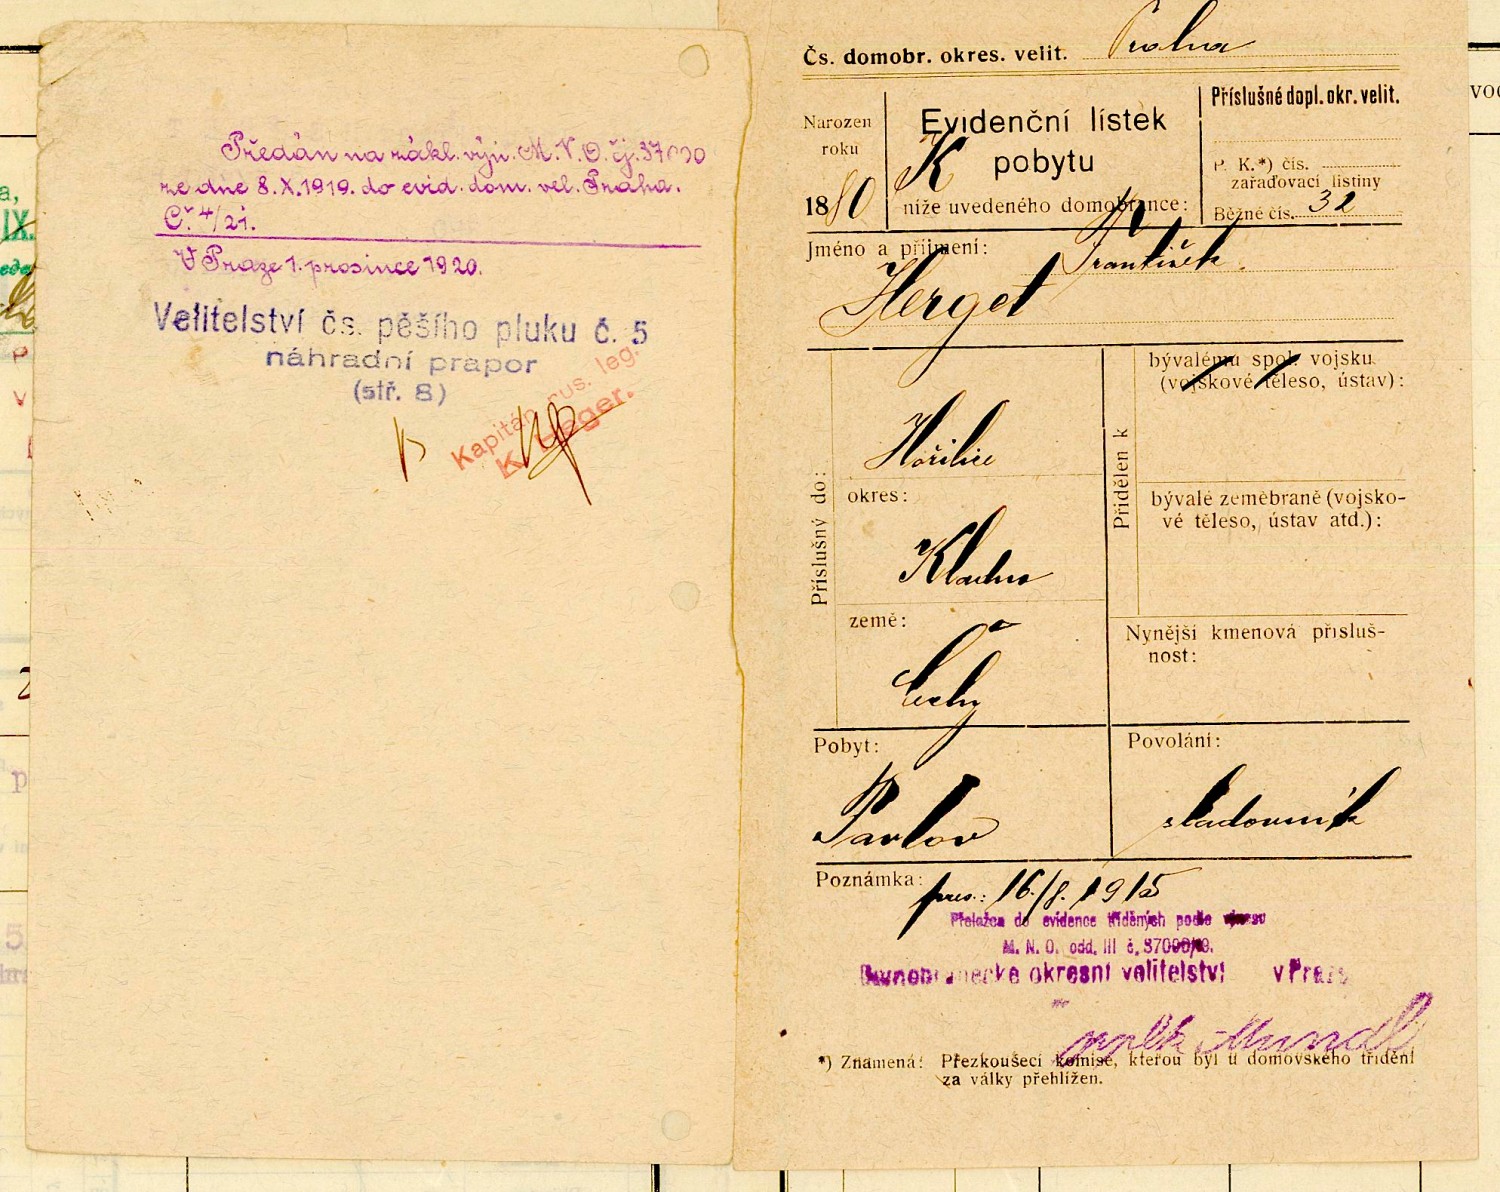 Předán na zákl. výn. M. V. O. čj. 37000
ze dne 8. X. 1919. do evid. dom. vel. Praha.
Č. 4/21.
V Praze 1. prosince 1920.
Velitelství čs. pěšího pluku č. 5
náhradní prapor
(stř. 8)
Kapitán rus. leg.
K. Heger.
Čs. domobr. okres. velit. Praha
Narozen
roku
1880
Evidenční lístek
pobytu
níže uvedeného domobrance:
K
Příslušné dopl. okr. velit.
P. K.*) čís.
zařaďovací listiny
Běžné čís. 32
Jméno a příjmení:
František
Herget
Příslušný do:
Hořilice
okres:
Kladno
země:
Čechy
Přidělen k
bývalému spol. vojsku
(vojskové těleso, ústav):
bývalé zeměbraně (vojsko-
vé těleso, ústav atd.):
Nynější kmenová přísluš-
nost:
Pobyt:
Pavlov
Povolání:
sladovník
Poznámka: pres.: 16./8. 1915
Přeložen do evidence tříděných podle výnosu
M. N. O. odd. III č. 37000/19.
okresní velitelství v Praze
*) Znamená: Přezkoušecí komise, kterou byl u domovského třídění
za války přehlížen.